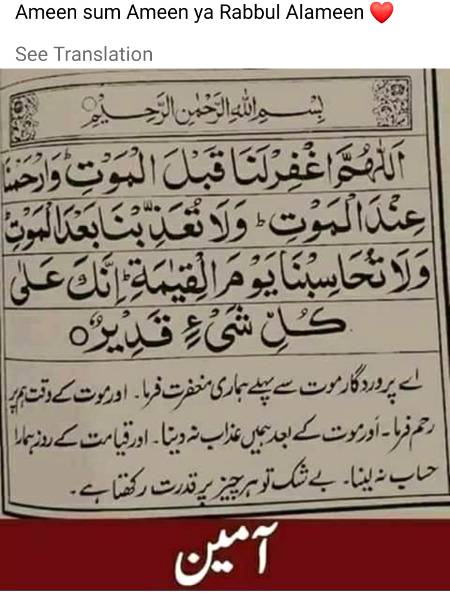 Ameen sum Ameen ya Rabbul Alameen ❤️
See Translation
بِسْمِ اللهِ الرَّحْمٰنِ الرَّحِيْمِ
اَللّٰهُمَّ اغْفِرْلَنَا قَبْلَ الْمَوْتِ ؕ وَارْحَمْنَا
عِنْدَ الْمَوْتِ ؕ وَلَا تُعَذِّبْنَا بَعْدَ الْمَوْتِ ؕ
وَلَا تُحَاسِبْنَا يَوْمَ الْقِيٰمَةِ ؕ اِنَّكَ عَلٰى
كُلِّ شَیْءٍ قَدِيْرٌ ○
اے پروردگار موت سے پہلے ہماری مغفرت فرما۔ اور موت کے وقت ہم پر
رحم فرما۔ اور موت کے بعد ہمیں عذاب نہ دینا۔ اور قیامت کے روز ہمارا
حساب نہ لینا۔ بے شک تو ہر چیز پر قدرت رکھتا ہے۔
آمین